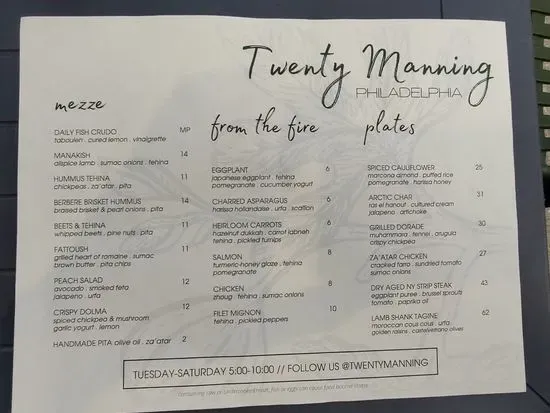 Twenty Manning
PHILADELPHIA
mezze
DAILY FISH CRUDO MP
tabouleh . cured lemon . vinaigrette
MANAKISH 14
allspice lamb . sumac onions . tehina
HUMMUS TEHINA 11
chickpeas . za'atar . pita
BERBERE BRISKET HUMMUS 14
braised brisket & pearl onions . pita
BEETS & TEHINA 11
whipped beets . pine nuts . pita
FATTOUSH 11
grilled heart of romaine . sumac
brown butter . pita chips
PEACH SALAD 12
avocado . smoked feta
jalapeno . urfa
CRISPY DOLMA 12
spiced chickpea & mushroom
garlic yogurt . lemon
HANDMADE PITA olive oil . za'atar 2
from the fire
EGGPLANT 6
japanese eggplant . tehina
pomegranate . cucumber yogurt
CHARRED ASPARAGUS 6
harissa hollandaise . urfa . scallion
HEIRLOOM CARROTS 6
hazelnut dukkah . carrot labneh
tehina . pickled turnips
SALMON 8
turmeric-honey glaze . tehina
pomegranate
CHICKEN 8
zhoug . tehina . sumac onions
FILET MIGNON 10
tehina . pickled peppers
plates
SPICED CAULIFLOWER 25
marcona almond . puffed rice
pomegranate . harissa honey
ARCTIC CHAR 31
ras el hanout . cultured cream
jalapeno . artichoke
GRILLED DORADE 30
muhammara . fennel . arugula
crispy chickpea
ZA'ATAR CHICKEN 27
cracked farro . sundried tomato
sumac onions
DRY AGED NY STRIP STEAK 43
eggplant puree . brussel sprouts
tomato . paprika oil
LAMB SHANK TAGINE 62
moroccan cous cous . urfa
golden raisins . castelvetrano olives
TUESDAY-SATURDAY 5:00-10:00 // FOLLOW US @TWENTYMANNING
consuming raw or undercooked meat, fish or eggs can cause food bourne illness